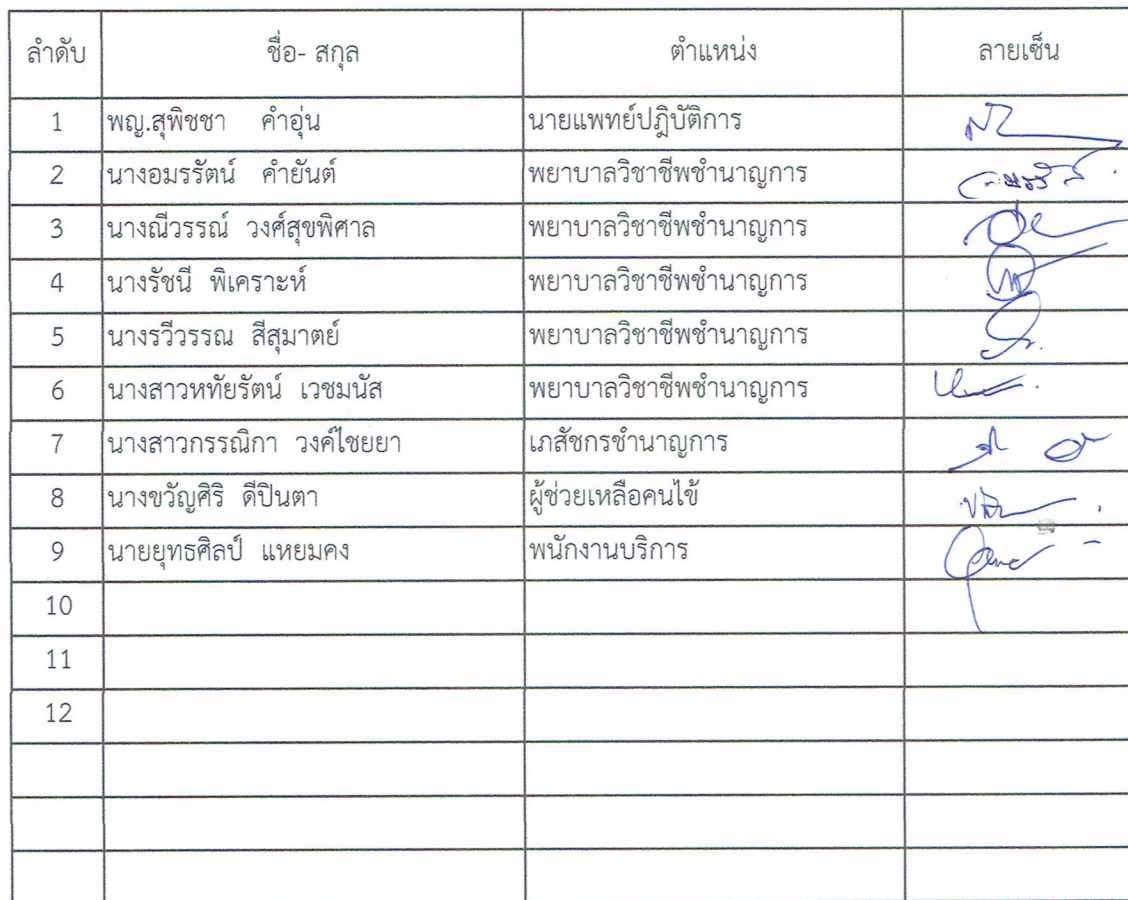 ลำดับ ชื่อ- สกุล ตำแหน่ง ลายเซ็น
1 พญ.สุพิชชา คำอุ่น นายแพทย์ปฎิบัติการ
2 นางอมรรัตน์ คำยันต์ พยาบาลวิชาชีพชำนาญการ
3 นางณีวรรณ์ วงศ์สุขพิศาล พยาบาลวิชาชีพชำนาญการ
4 นางรัชนี พิเคราะห์ พยาบาลวิชาชีพชำนาญการ
5 นางรวีวรรณ สีสุมาตย์ พยาบาลวิชาชีพชำนาญการ
6 นางสาวหทัยรัตน์ เวชมนัส พยาบาลวิชาชีพชำนาญการ
7 นางสาวกรรณิกา วงค์ไชยยา เภสัชกรชำนาญการ
8 นางขวัญศิริ ดีปินตา ผู้ช่วยเหลือคนไข้
9 นายยุทธศิลป์ แหยมคง พนักงานบริการ
10
11
12